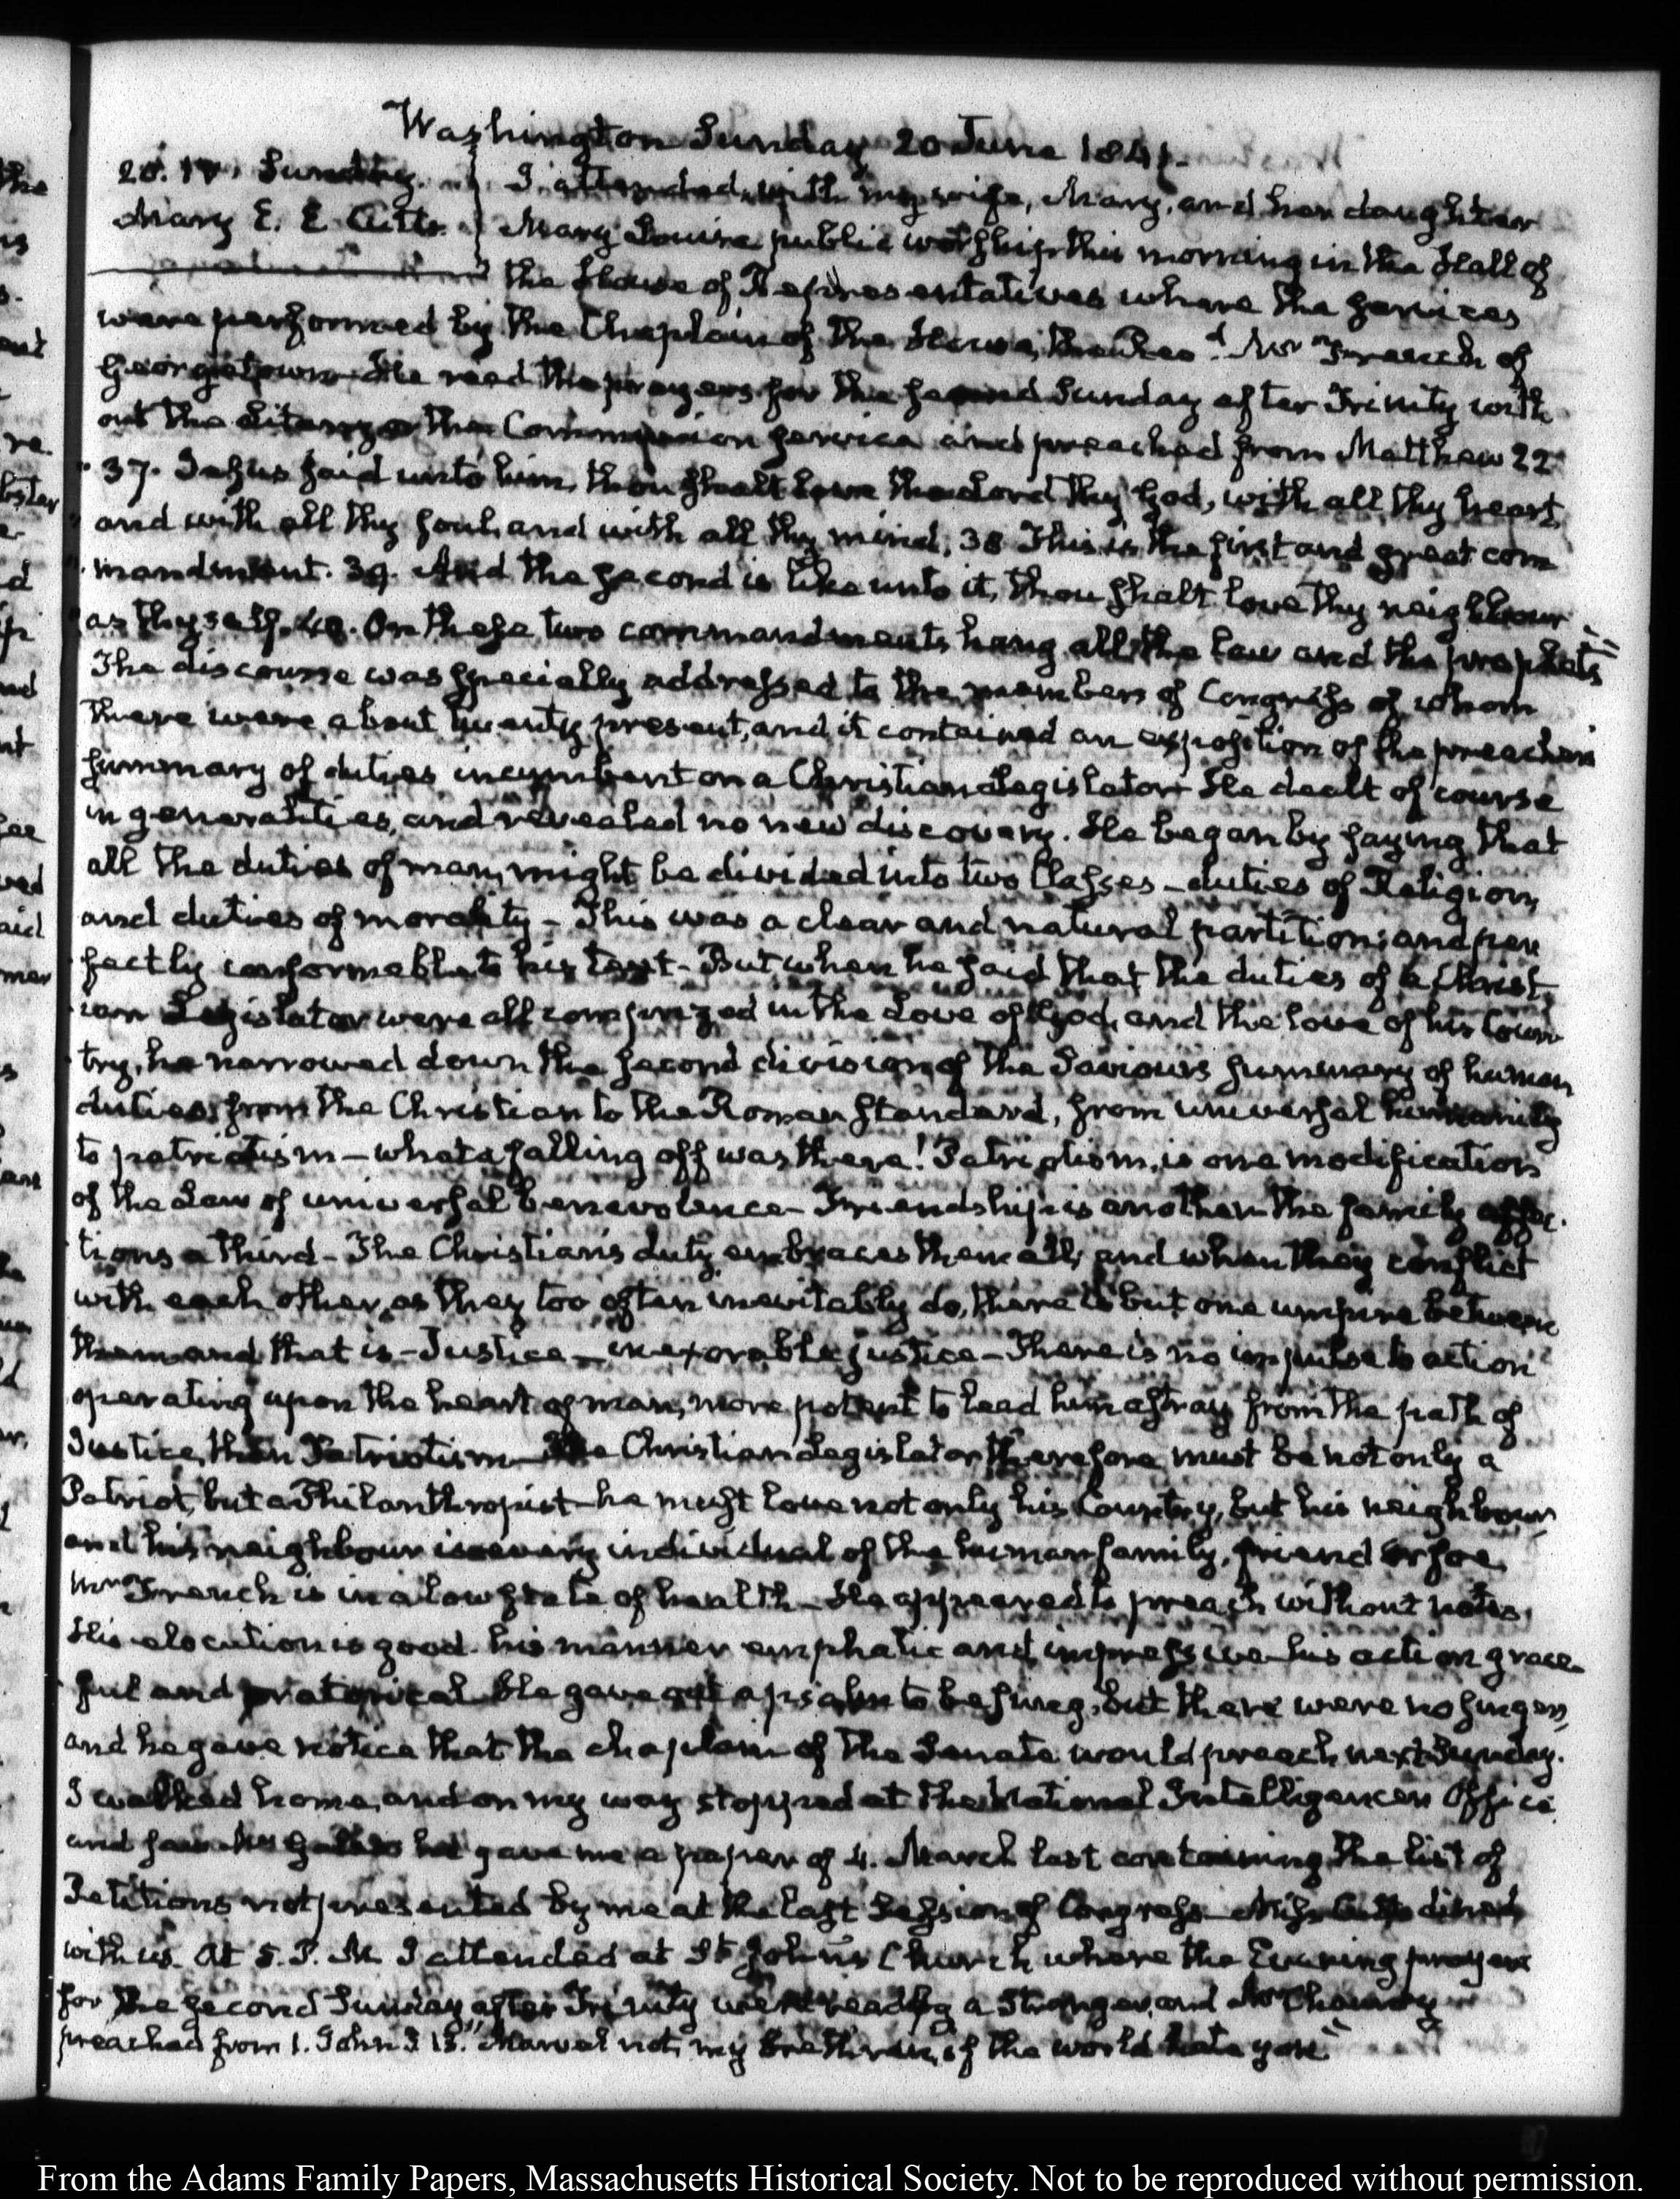 Washington Sunday 20 June 1841.
20. IV. Sunday.
Mary E. E. Cutts.
I attended with my wife, Mary, and her daughter
Mary Louisa public worship this morning in the Hall of
the House of Representatives where the services
were performed by the Chaplain of the House, the Revd. Mr French of
Georgetown. He read the prayers for the second Sunday after Trinity with
out the Litany or the Communion service and preached from Matthew 22
37. Jesus said unto him, thou shalt love the Lord thy God, with all thy heart,
and with all thy soul, and with all thy mind, 38 This is the first and great com
mandment. 39. And the second is like unto it, thou shalt love thy neighbour
as thyself. 40. On these two commandments hang all the law and the prophets"
The discourse was specially addressed to the members of Congress of whom
there were about twenty present, and it contained an exposition of the preacher's
summary of duties incumbent on a Christian Legislator. He dealt of course
in generalities, and revealed no new discovery. He began by saying that
all the duties of man, might be divided into two Classes - duties of Religion,
and duties of morality - This was a clear and natural partition; and per
fectly conformable to his text - But when he said that the duties of a Christ
ian Legislator were all comprized in the Love of God, and the love of his Coun
try, he narrowed down the second division of the Saviour's summary of human
duties, from the Christian to the Roman standard, from universal humanity
to patriotism - what a falling off was there! Patriotism, is one modification
of the Law of universal benevolence - Friendship is another - the family affec
tions a third - The Christian's duty embraces them all; and when they conflict
with each other, as they too often inevitably do, there is but one umpire between
them and that is - Justice - inexorable justice - There is no impulse to action
operating upon the heart of man, more potent to lead him astray from the path of
Justice, than Patriotism - The Christian Legislator therefore must be not only a
Patriot, but a Philanthropist - he must love not only his Country, but his neighbour
and his neighbour is every individual of the human family, friend or foe.
Mr French is in a low state of health - He appeared to preach without notes,
His elocution is good - his manner emphatic and impressive - his action grace
ful and oratorical. He gave out a psalm to be sung, but there were no singers,
and he gave notice that the chaplain of the Senate would preach next Sunday.
I walked home, and on my way stopped at the National Intelligencer Office
and saw Mr Gales he gave me a paper of 4. March last containing the list of
Petitions not presented by me at the last Session of Congress - Miss Cutts dined
with us. At 5. P. M. I attended at St John's Church where the Evening prayers
for the second Sunday after Trinity were read by a Stranger, and Mr
preached from 1. John 3 13. "Marvel not, my brethren, if the world hate you."
From the Adams Family Papers, Massachusetts Historical Society. Not to be reproduced without permission.